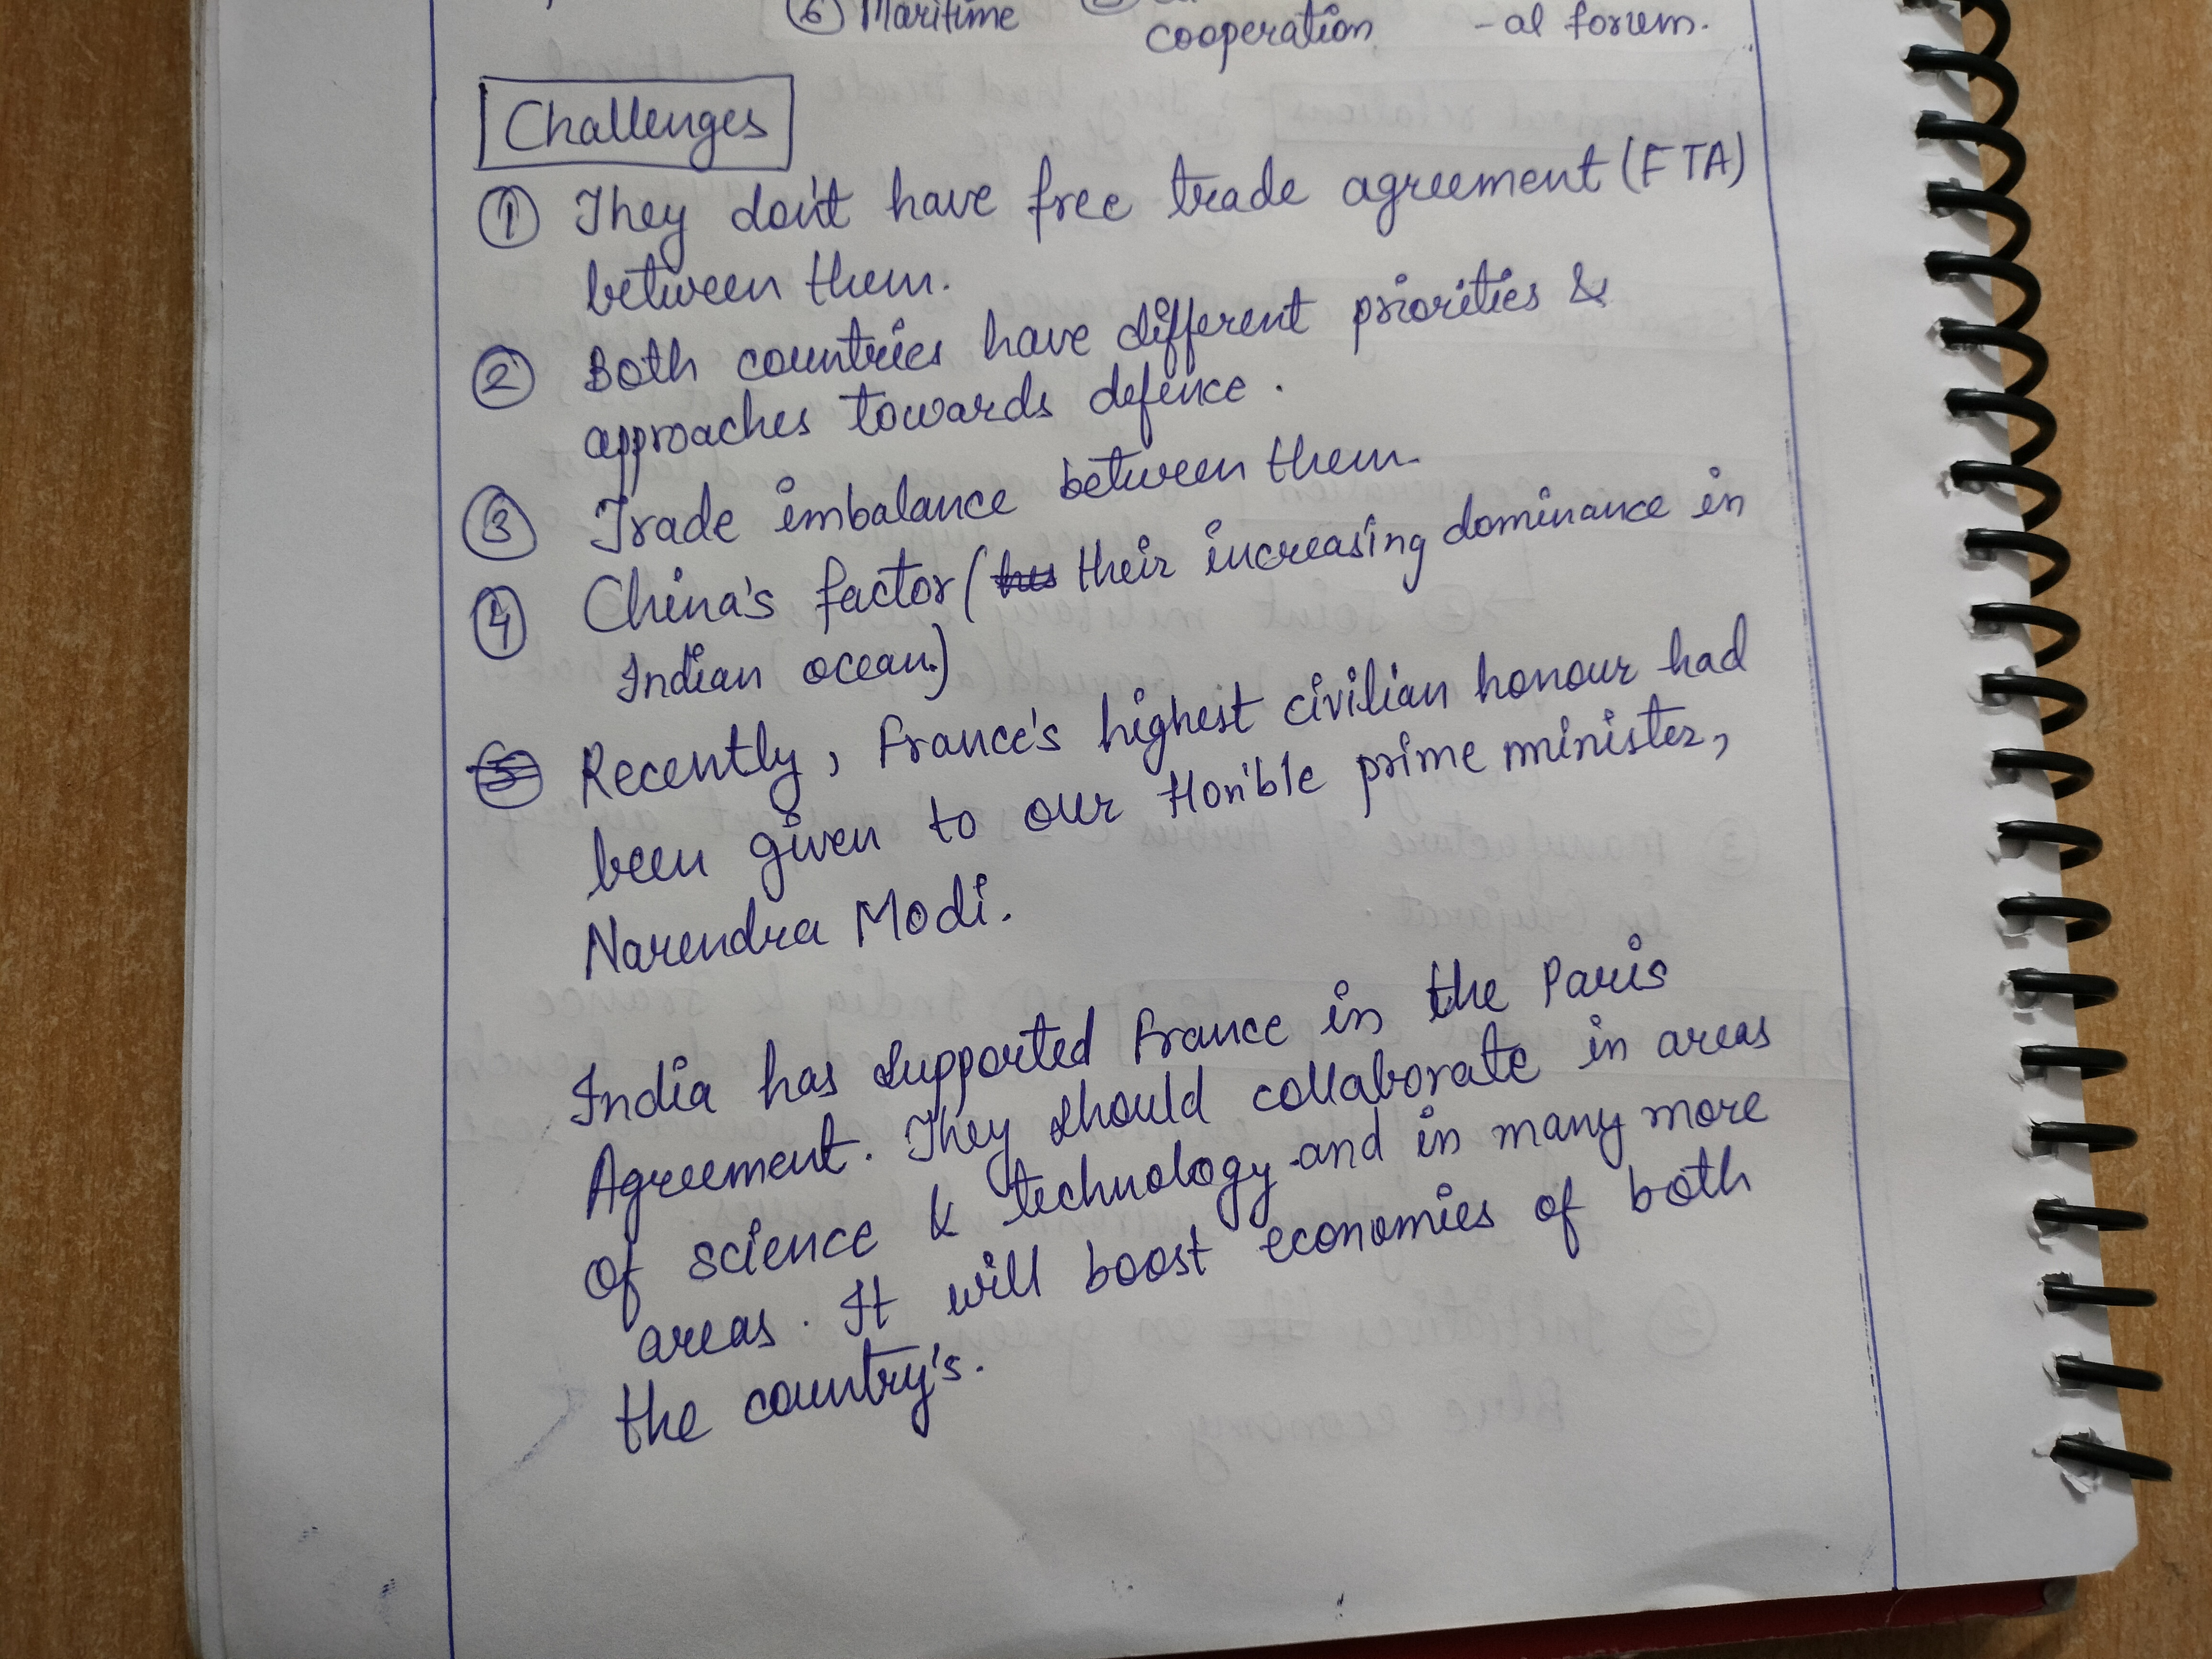 ⑥ Maritime cooperation -al forum.
Challenges
① They don't have free trade agreement (FTA)
between them.
② Both countries have different priorities &
approaches towards defence.
③ Trade imbalance between them.
④ China's factor ( their increasing dominance in
Indian ocean.)
Recently, France's highest civilian honour had
been given to our Hon'ble prime minister,
Narendra Modi.
India has supported France in the Paris
Agreement. They should collaborate in areas
of science & technology and in many more
areas. It will boost economies of both
the country's.